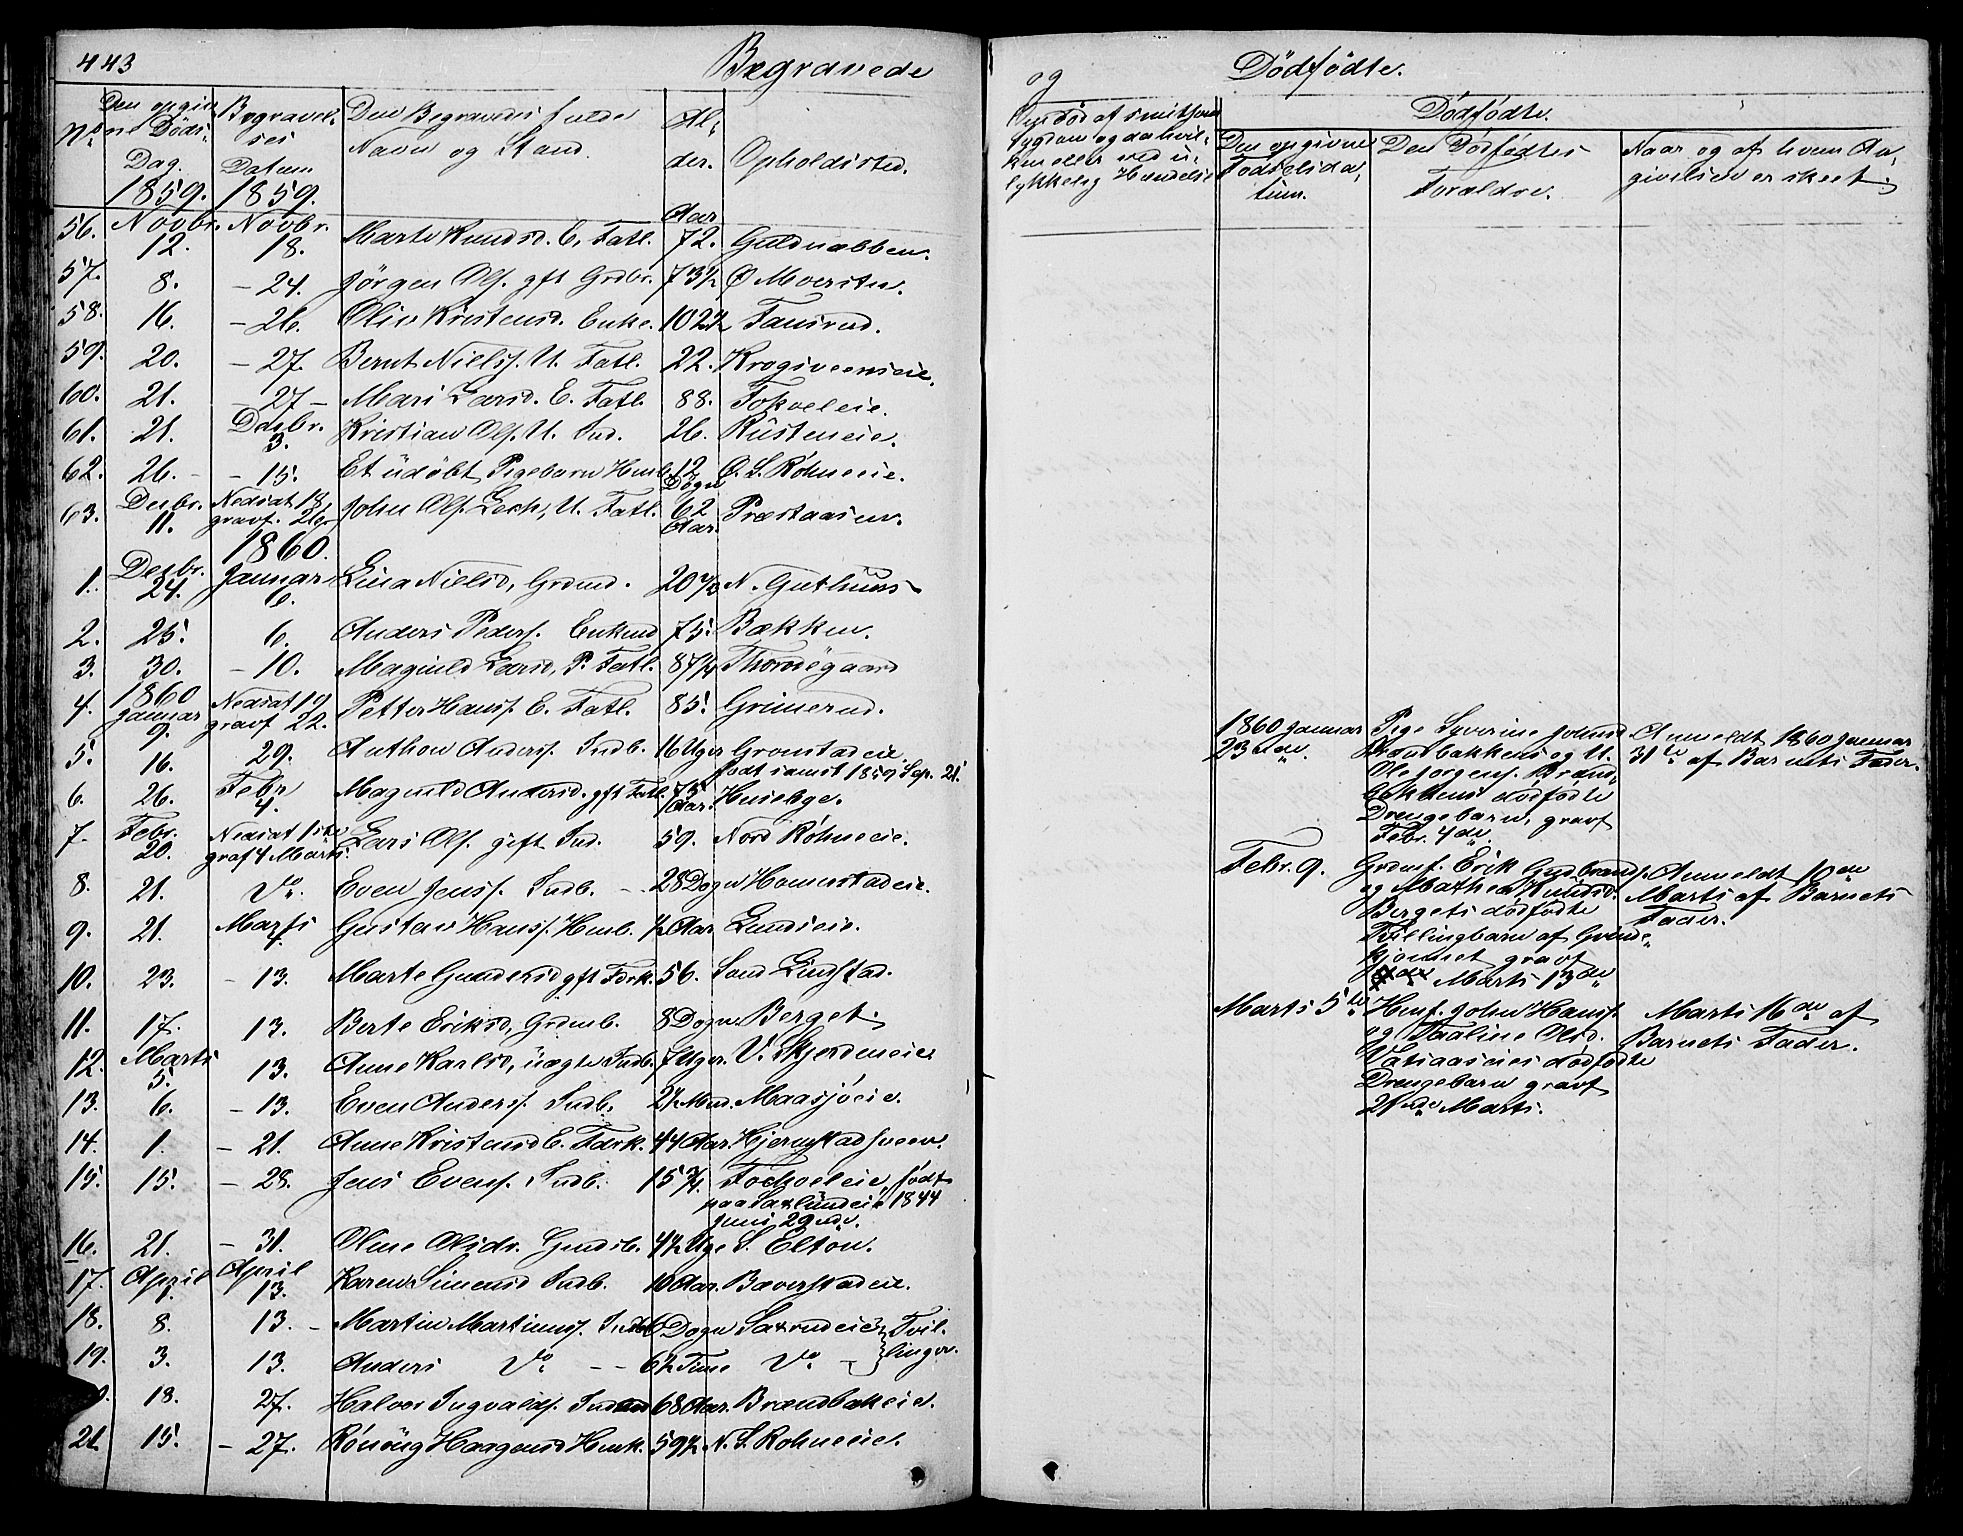 443 Begravede
No Den opgivne Døds- Dag. Begravelses Datum Den Begravedes fulde Navn og Stand. Alder. Opholdssted.
1859. 1859. Aar
56. Novbr. 12. Novbr. 18. Marte Knudsd. E. Fatl. 72. Guldnæbben.
57. 8. – 24. Jörgen Ols. gft Grdbr. 73½ Ø Mversten.
58. 16. – 26. Oliv Kristensd. Enke. 102½ Fansrud.
59. 20. – 27. Bernt Nielss. U. Fatl. 22. Krogsveenseie.
60. 21. – 27 – Mari Larsd. E. Fatl. 88. Tokveleie.
61. 21. Decbr. 3. Kristian Ols. U. Ind. 26. Rüsteneie.
62. 26. – – 15. Et üdøbt Pigebarn Hmb. 12 Døgn O. S. Röhneeie.
63. Decbr. 11. Nedsat 18 gravf. 26 John Ols. Lech, U. Fatl. 62 Aar. Præstaasen.
1860.
1. Decbr. 24. Januar 6. Lina Nielsd, Grdmd. 20 N. Guthuus
2. 25. 6. Anders Peders. Enkmd 75. Bækken.
3. 30. – 10. Magnild Larsd, P. Fatl. 87¼ Thorsegaard
4. 1860 Januar 9. Nedsat 19 gravf 22. Petter Hanss. E. Fatl. 85. Grimerud.
5. 16. 29. Anthon Anderss. Indb. 16 Uger Gronstadeie.
født samst 1859 Sep. 21.
6. 26. Febr 4. Magnild Andersd. gft Fatl. 75 Aar. Huselye.
7. Febr. 20. Nedsat 1ste graf 4 Marts. Lars Ols. gift Ind. 59. Nord Röhneeie.
8. 21. Do. Even Jenss. Indb. – 28 Dogn Homnstadeie.
9. 21. Marts 4. Gustav Hanss. Hmb. ½ Aar Lundseie.
10. 23. – 13. Marte Gundersd gft Fdrk. 56. Sønd Lindstad.
11. 17. 13. Berte Eriksd, Grdmb. 8 Dogn Berget.
12. Marts 5. 13. Anne Karlsd, üægte Indb. 7 Uger. V. Skjerdneeie
13. 6. – 13. Even Anderss. Indb. 2½ Mnd. Maasjöeie.
14. 1. – 21. Anne Kristensd E. Fdrk. 44 Aar. Hjernstadsveen.
15. 15. – 28. Jens Evens. Indb. 15¾. Fockveleie, født
paa Saxlündeie 1844
Juni 29nde.
16. 21. – 31. Oline Olsdr. Gmdsb. 4½ Uge S. Elton.
17. April 7. April 13. Karen Simensd Indb. 10 Aar. Bæverstadeie.
18. 8. 13. – Martin Martinuss. Indb 6 Dogn Saxrudeie } Tvil-
19. 3. 13. Anders Do – – 6½ Time Do – } linger.
18. 27. Halvor Ingvalds. Ind 68 Aar. Brændbakeie.
21 15. – 27. Rönnüg Haagensd Hmk. 59½ N. S. Rohneeie.
og Dödfödte.
Om död af smitsom
Sygdom og da hvil-
ken eller ved ü-
lykkelig Hændelse
Dödfödte.
Den opgivne
Fødselsda-
tum.
Den Dödfödtes
Forældre.
Naar og af hvem An-
givelsen er skeet.
1860 Januar
23nde.
Pige Syverine Johnsd
Brændbakkens og U.
Ole Jörgens. Brænd-
bakkens dødfødte
Drengebarn, gravf
Febr. 4de.
Anmeldt 1860 Januar
31te af Barnets Fader.
Febr. 9.
Grdms. Erik Gudbrands.
og Mathea Knudsd.
Bergets dödfödte
Tvillingbarn af Qvinde-
kjønnet gravf
Marts 13de
Anmeldt 10de
Marts af Barnets
Fader.
Marts 5te
Hms. John Hanss.
og Paaline Olsd.
Vatsaaseies dødfødte
Drengebarn gravf
21nde Marts.
Marts 16de af
Barnets Fader.